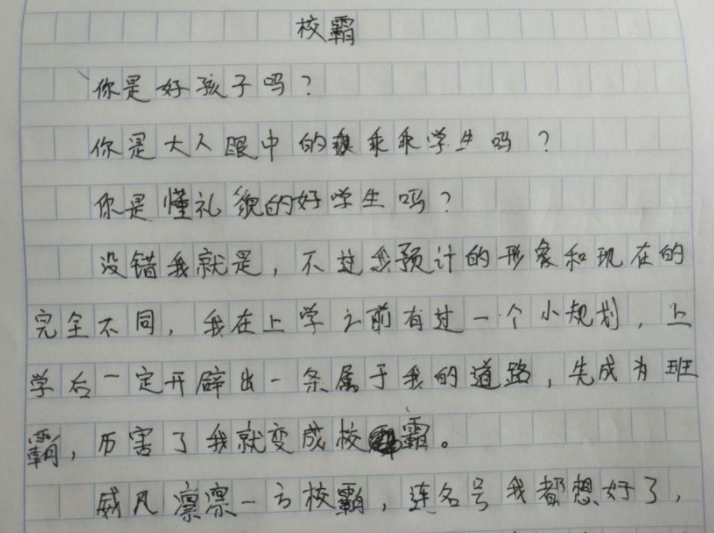 校霸
你是好孩子吗？
你是大人眼中的乖乖学生吗？
你是懂礼貌的好学生吗？
没错我就是，不过我预计的形象和现在的
完全不同，我在上学之前有过一个小规划，上
学后一定开辟出一条属于我的道路，先成为班
霸，厉害了我就变成校霸。
威凡凛凛一方校霸，连名号我都想好了，